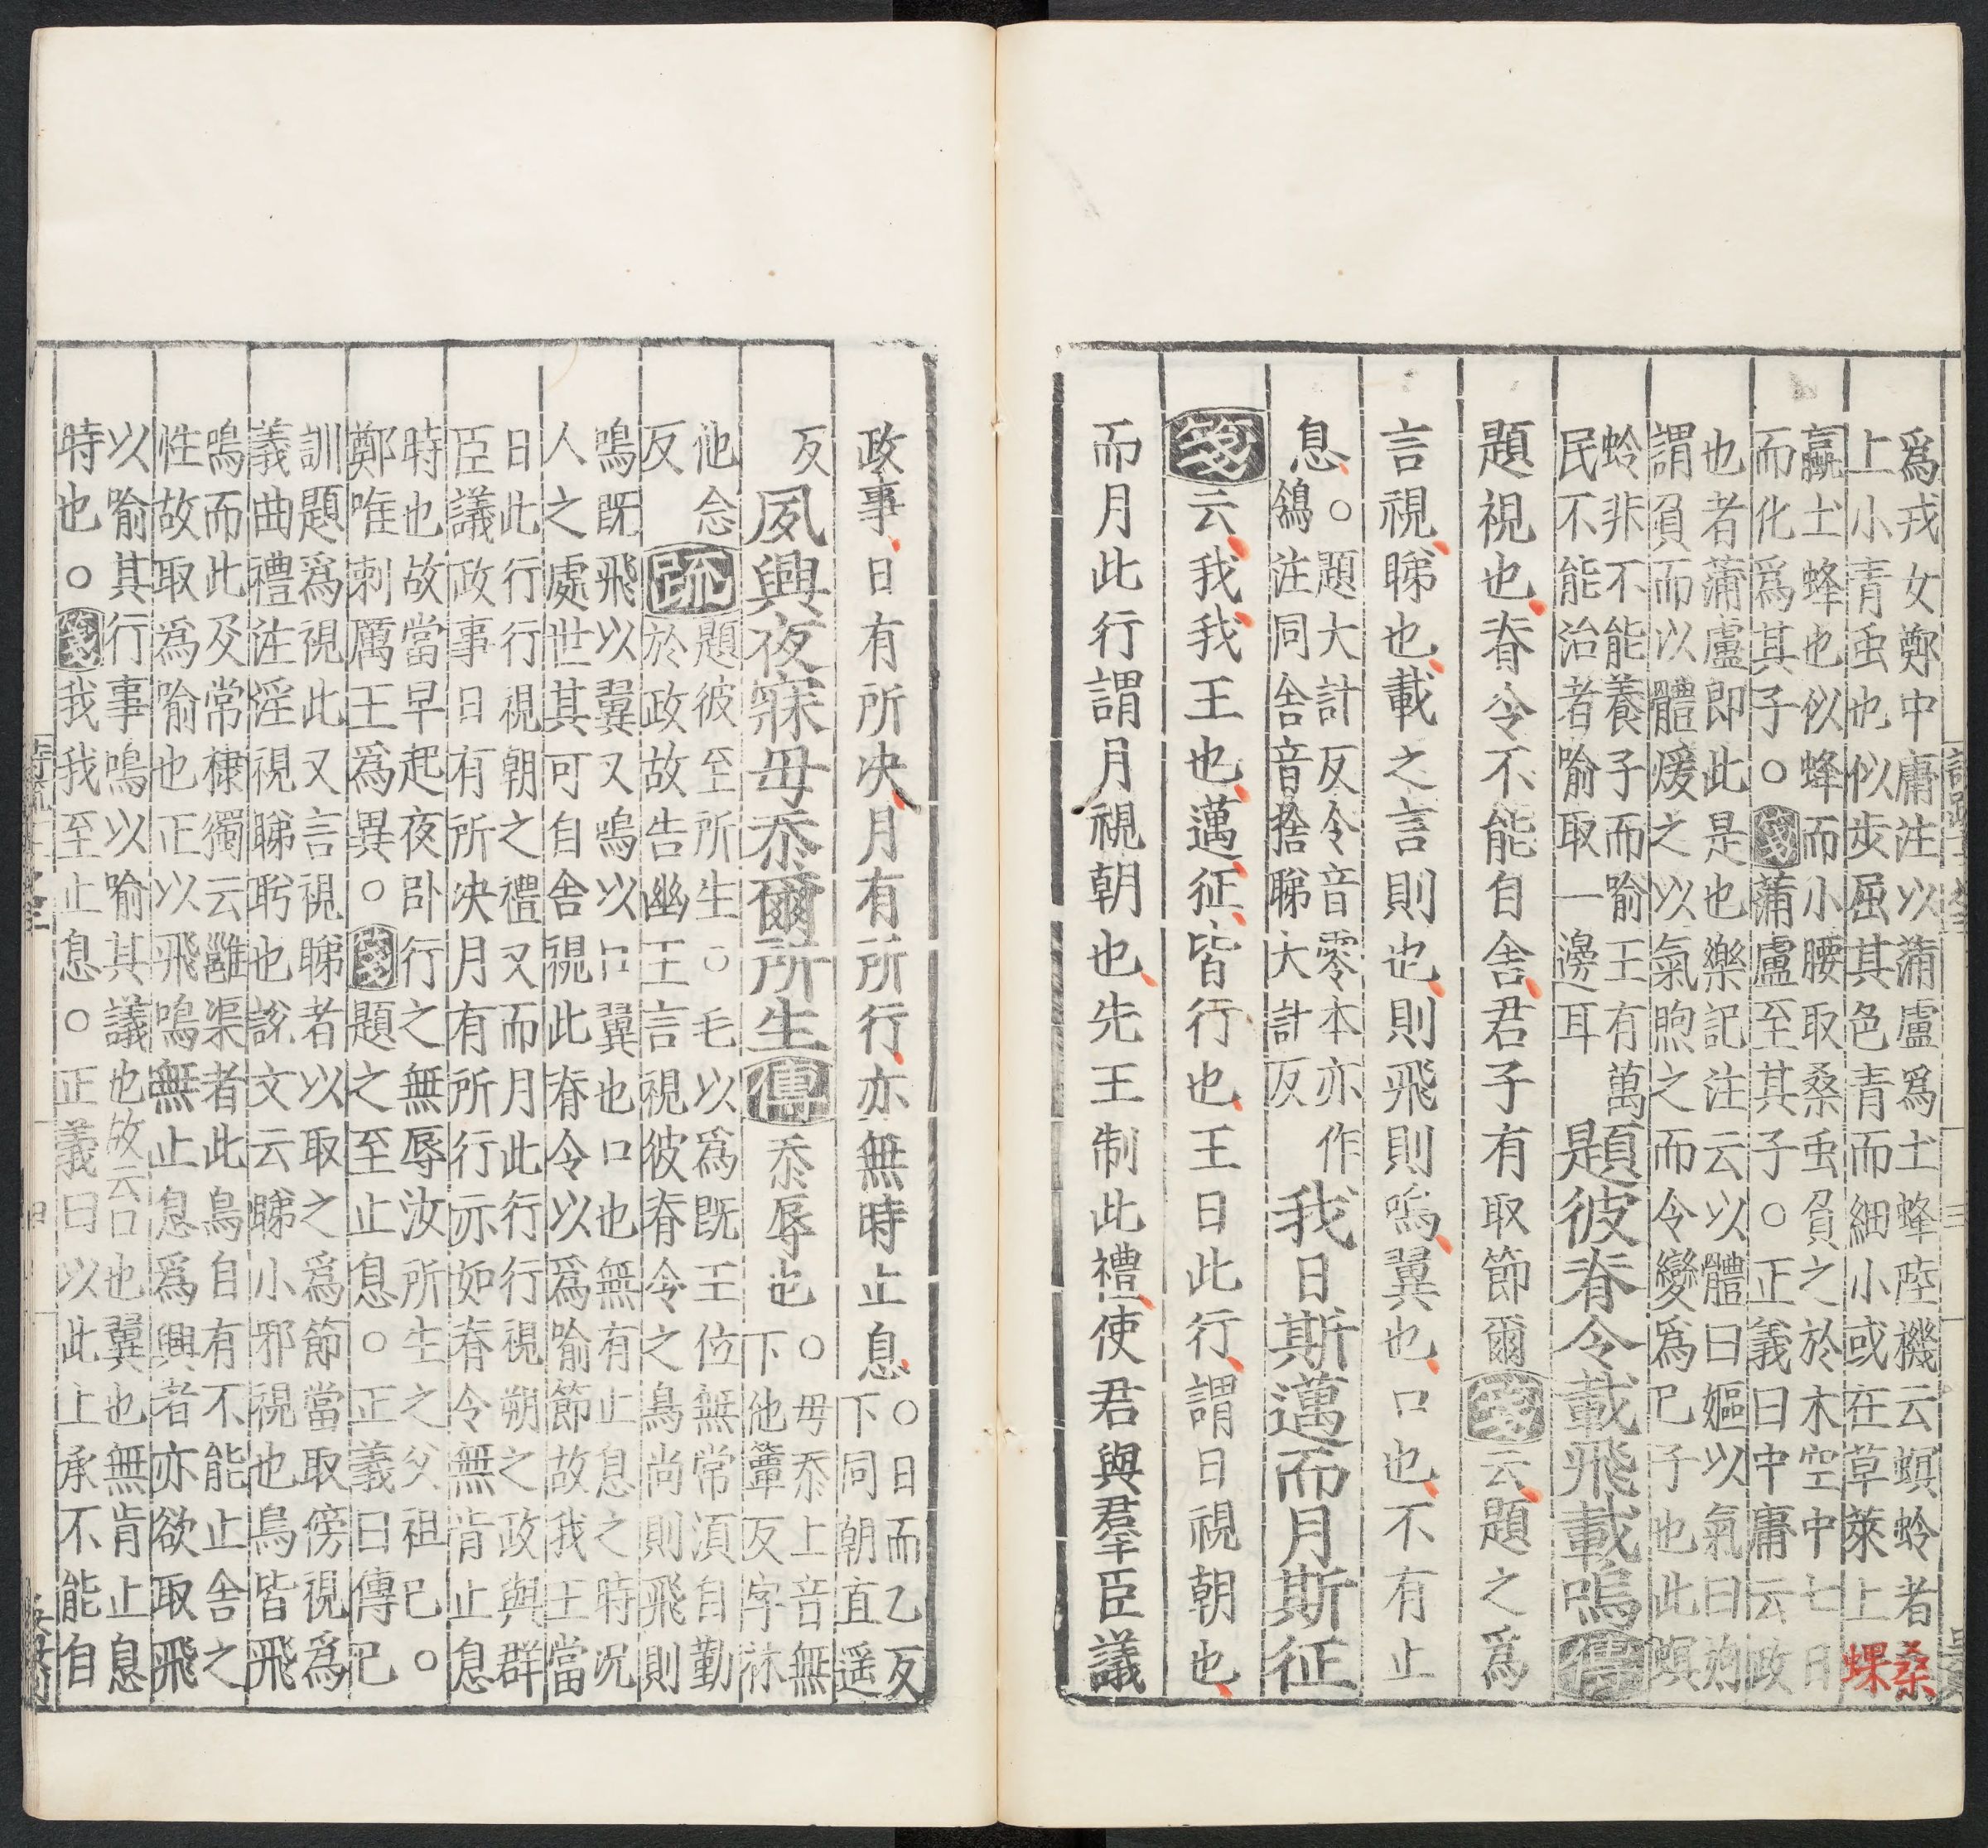 爲戎女鄭中庸注以蒲盧爲土蜂陸機云螟蛉者桑
上小青虫也似步屈其色青而細小或在草萊上蜾
蠃土蜂也似蜂而小腰取桑虫負之於木空中七日
而化爲其子○箋蒲盧至其子○正義曰中庸云政
也者蒲盧即此是也樂記注云以體曰嫗以氣曰煦
謂負而以體煖之以氣煦之而令變爲已子也此螟
蛉非不能養子而喻王有萬
民不能治者喻取一邊耳
題彼脊令載飛載鳴傳
題視也脊令不能自舍君子有取節爾箋云題之爲
言視睇也載之言則也則飛則鳴翼也口也不有止
息○題大計反令音零本亦作
鴒注同舍音捨睇大計反
我日斯邁而月斯征
箋云我我王也邁征皆行也王日此行謂日視朝也
而月此行謂月視朝也先王制此禮使君與羣臣議
政事日有所决月有所行亦無時止息○日而乙反
下同朝直遥
反
夙興夜寐毋忝爾所生傳忝辱也○毋忝上音無
下他簟反字林
他念
反
疏題彼至所生○毛以爲既王位無常湏自勤
於政故告幽王言視彼脊令之鳥尚則飛則
鳴既飛以翼又鳴以口翼也口也無有止息之時况
人之處世其可自舍視此脊令以爲喻節故我王當
日此行行視朝之禮又而月此行行視朔之政與群
臣議政事日有所决月有所行亦如脊令無肯止息
時也故當早起夜卧行之無辱汝所生之父祖已○
鄭唯刺厲王爲異○傳題之至止息○正義曰傳已
訓題爲視此又言視睇者以取之爲節當取傍視爲
義曲禮注淫視睇盻也說文云睇小邪視也鳥皆飛
鳴而此及常棣獨云雝渠者此鳥自有不能止舍之
性故取爲喻也正以飛鳴無止息爲興者亦欲取飛
以喻其行事鳴以喻其議也故云口也翼也無肯止息
時也○箋我我至止息○正義曰以此上承不能自